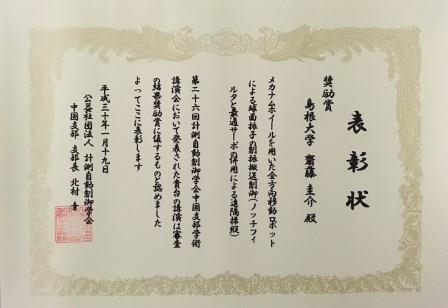 表彰状
奨励賞
島根大学 齋藤 圭介 殿
メカナムホイールを用いた全方向移動ロボット
による球面振子の制振搬送制御(ノッチフィ
ルタと最適サーボの併用による遠隔操縦)
第二十六回計測自動制御学会中国支部学術
講演会において発表された貴台の講演は審査
の結果奨励賞に値するものと認めました
よってここに表彰します
平成三十年一月十九日
公益社団法人 計測自動制御学会
中国支部 支部長 北村 章